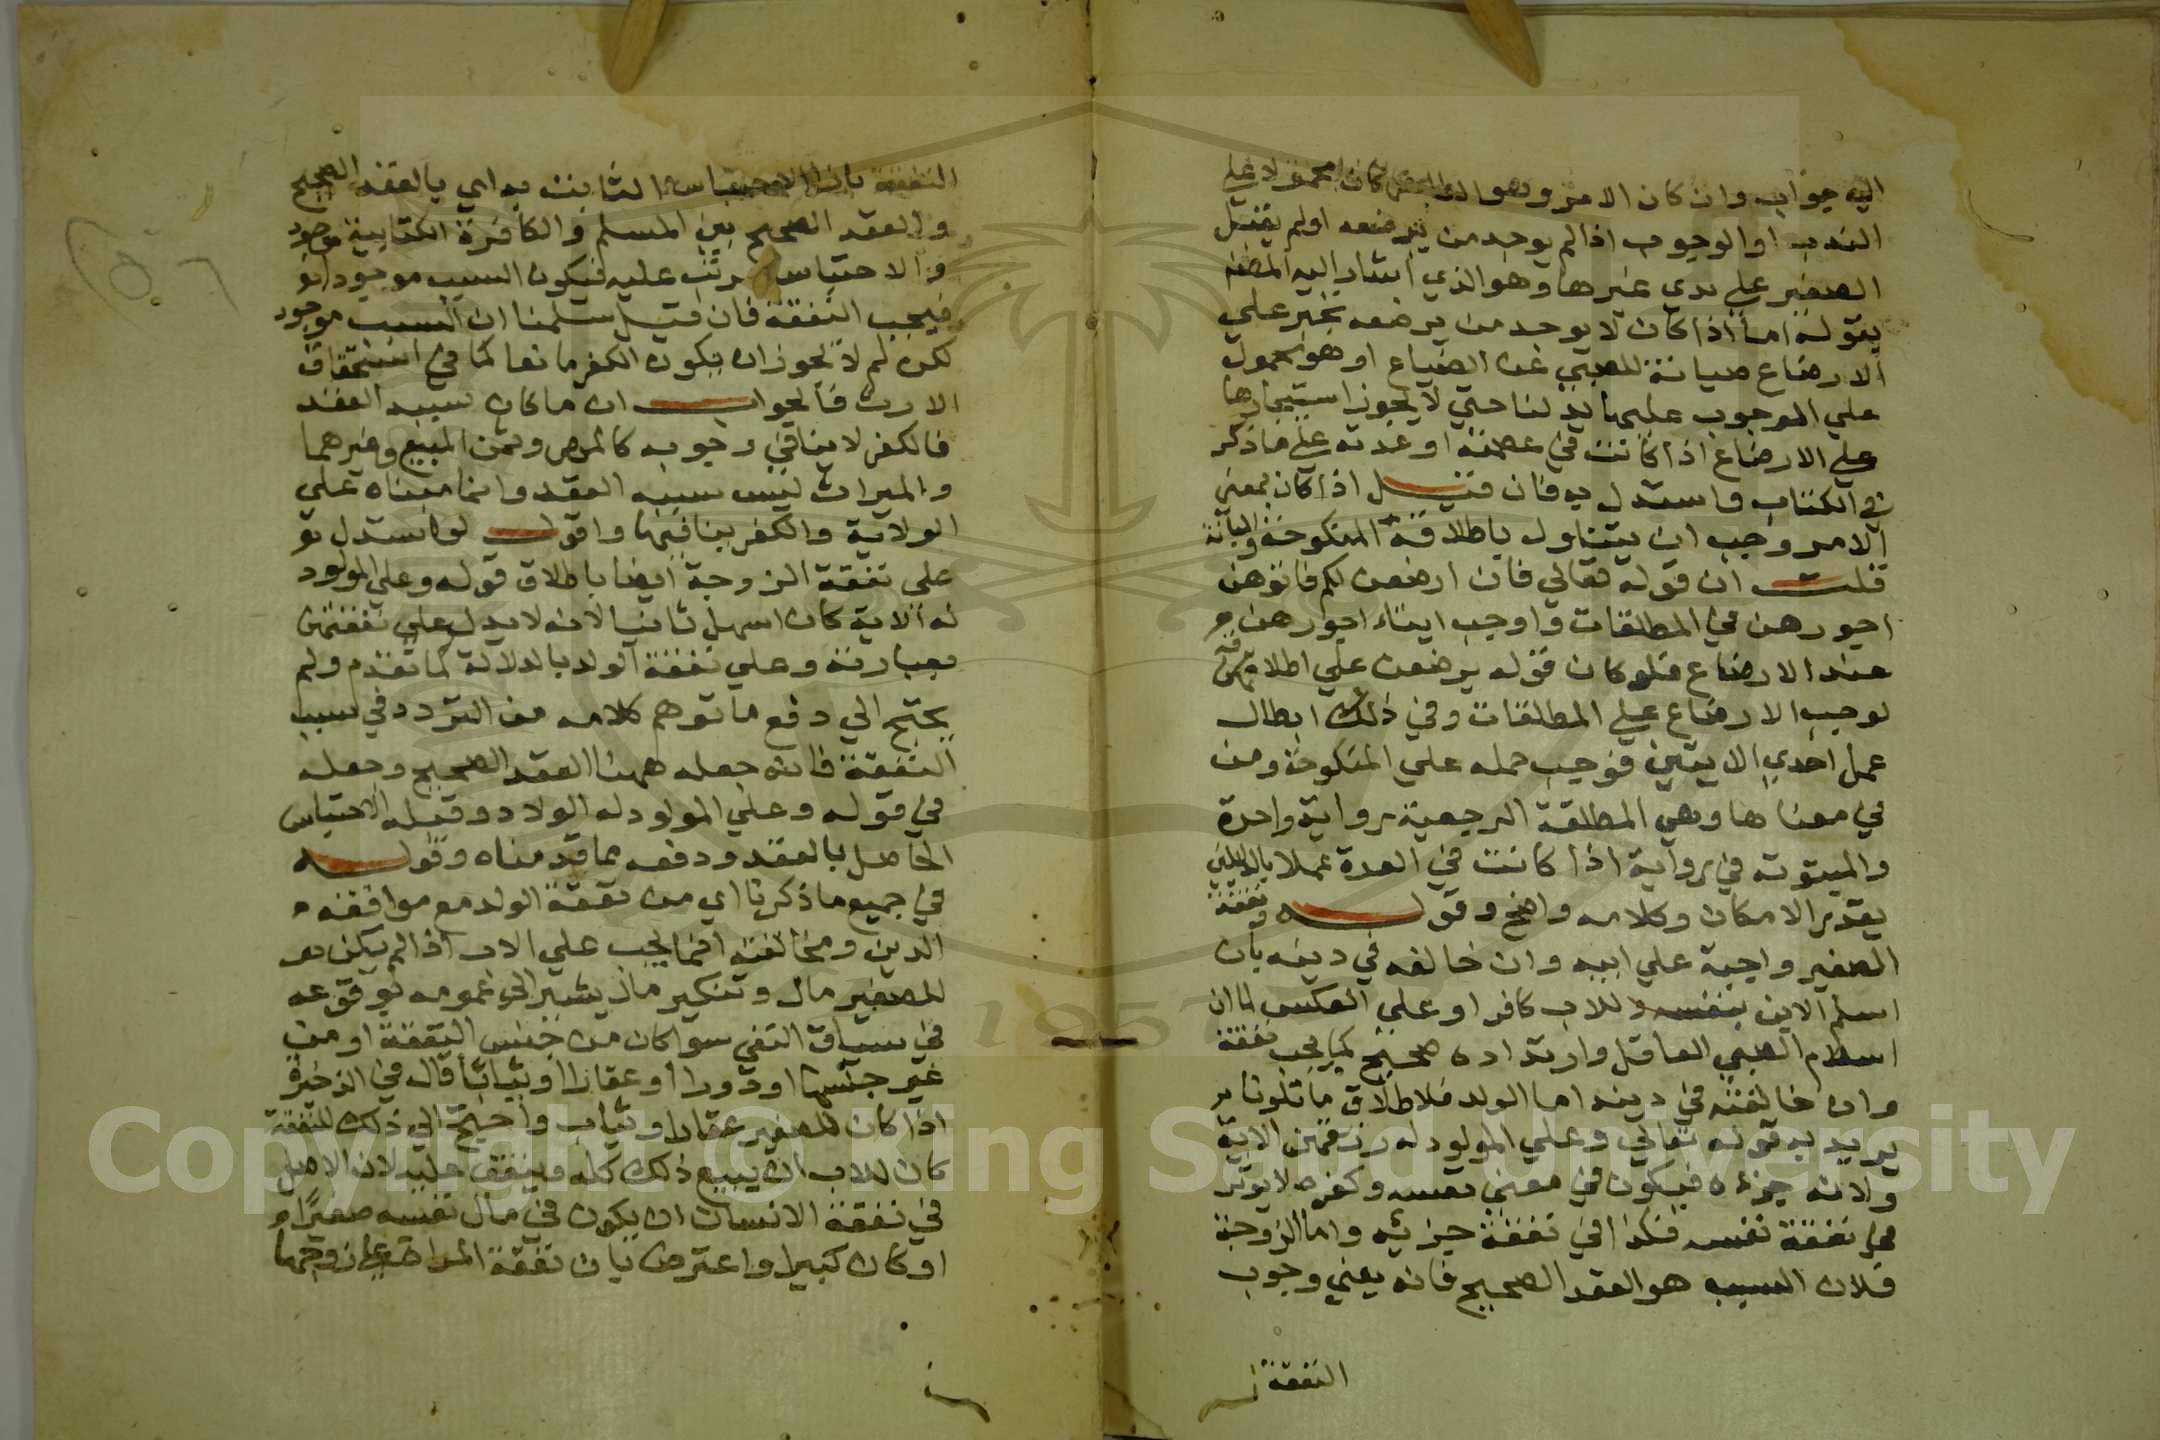 اليه جوابه وان كان الامر وهو الذي كان محمولا علي
الندب او الوجوب اذا لم يوجد من يرضعه او لم يقبل
الصغير علي ثدي غيرها وهو الذي اشار اليه المصنف
بقوله اما اذا كان لا يوجد من يرضعه تجبر علي
الارضاع صيانة للصبي عن الضياع او هو محمول
علي الوجوب عليها حتي لا يجوز استيجارها
علي الارضاع اذا كانت في عصمته او عدته علي ما ذكر
في الكتاب فاستدل به فان قيل اذا كان بمعني
الامر وجب ان يتناول باطلاقه المنكوحة والبائنة
قلت ان قوله تعالي فان ارضعن لكم فاتوهن
اجورهن في المطلقات واوجب ايتاء اجورهن
عند الارضاع فلو كان قوله يرضعن علي اطلاقه
لوجب الارضاع علي المطلقات وفي ذلك ابطال
عمل احدي الايتين فوجب حمله علي المنكوحة ومن
في معناها وهي المطلقة الرجعية رواية واحدة
والمبتوتة في رواية اذا كانت في العدة عملا بالدليلين
بقدر الامكان وكلامه واضح وقوله ونفقة
الصغير واجبة علي ابيه وان خالفه في دينه بان
اسلم الابن بنفسه والاب كافر او علي العكس لما ان
اسلام الصبي العاقل وارتداده صحيح كما يجب نفقة
وان خالفته في دينه اما الولد فلاطلاق ما تلونا
يريد به قوله تعالي وعلي المولود له رزقهن الاية
ولانه جزءه فيكون في معني نفسه وكفره لا يوثر
في نفقة نفسه فكذا في نفقة جزئه واما الزوجة
فلان السبب هو العقد الصحيح فانه يعني وجوب
النفقة
النفقة بازاء الاحتباس الثابت به اي بالعقد الصحيح
والعقد الصحيح بين المسلم والكافرة الكتابية موجود
والاحتباس مرتب عليه فيكون السبب موجودا
فيجب النفقة فان قيل سلمنا ان السبب موجود
لكن لم لا يجوز ان يكون الكفر مانعا كما في استحقاق
الارث فالجواب ان ما كان سببه العقد
فالكفر لا ينافي وجوبه كالمهر وثمن المبيع وغيرهما
والميراث ليس سببه العقد وانما مبناه علي
الولاية والكفر ينافيها واقول لو استدل
علي نفقة الزوجة ايضا باطلاق قوله وعلي المولود
له الاية كان اسهل تانيا لانه لا يدل علي نفقتهن
بعبارته وعلي نفقة الولد بالدلالة كما تقدم ولم
يحتج الي دفع ما توهم كلامه من التردد في سبب
النفقة فانه جعله ههنا العقد الصحيح وجعله
في قوله وعلي المولود له الولاد وقبله الاحتباس
الحاصل بالعقد ودفعه بما قدمناه وقوله
في جميع ما ذكرنا اي من نفقة الولد مع موافقته
الدين ومخالفته انما يجب علي الاب اذا لم يكن
للصغير مال وتنكير مال يشير الي عمومه لوقوعه
في سياق النفي سوا كان من جنس النفقة او من
غير جنسها او دورا او عقارا او ثيابا قال في الذخيرة
اذا كان للصغير عقارا وثياب واحتيج الي ذلك للنفقة
كان للاب ان يبيع ذلك كله وينفق عليه لان الاصل
في نفقة الانسان ان يكون في مال نفسه صغيرا
او كان كبيرا واعترض بان نفقة المراة علي زوجها